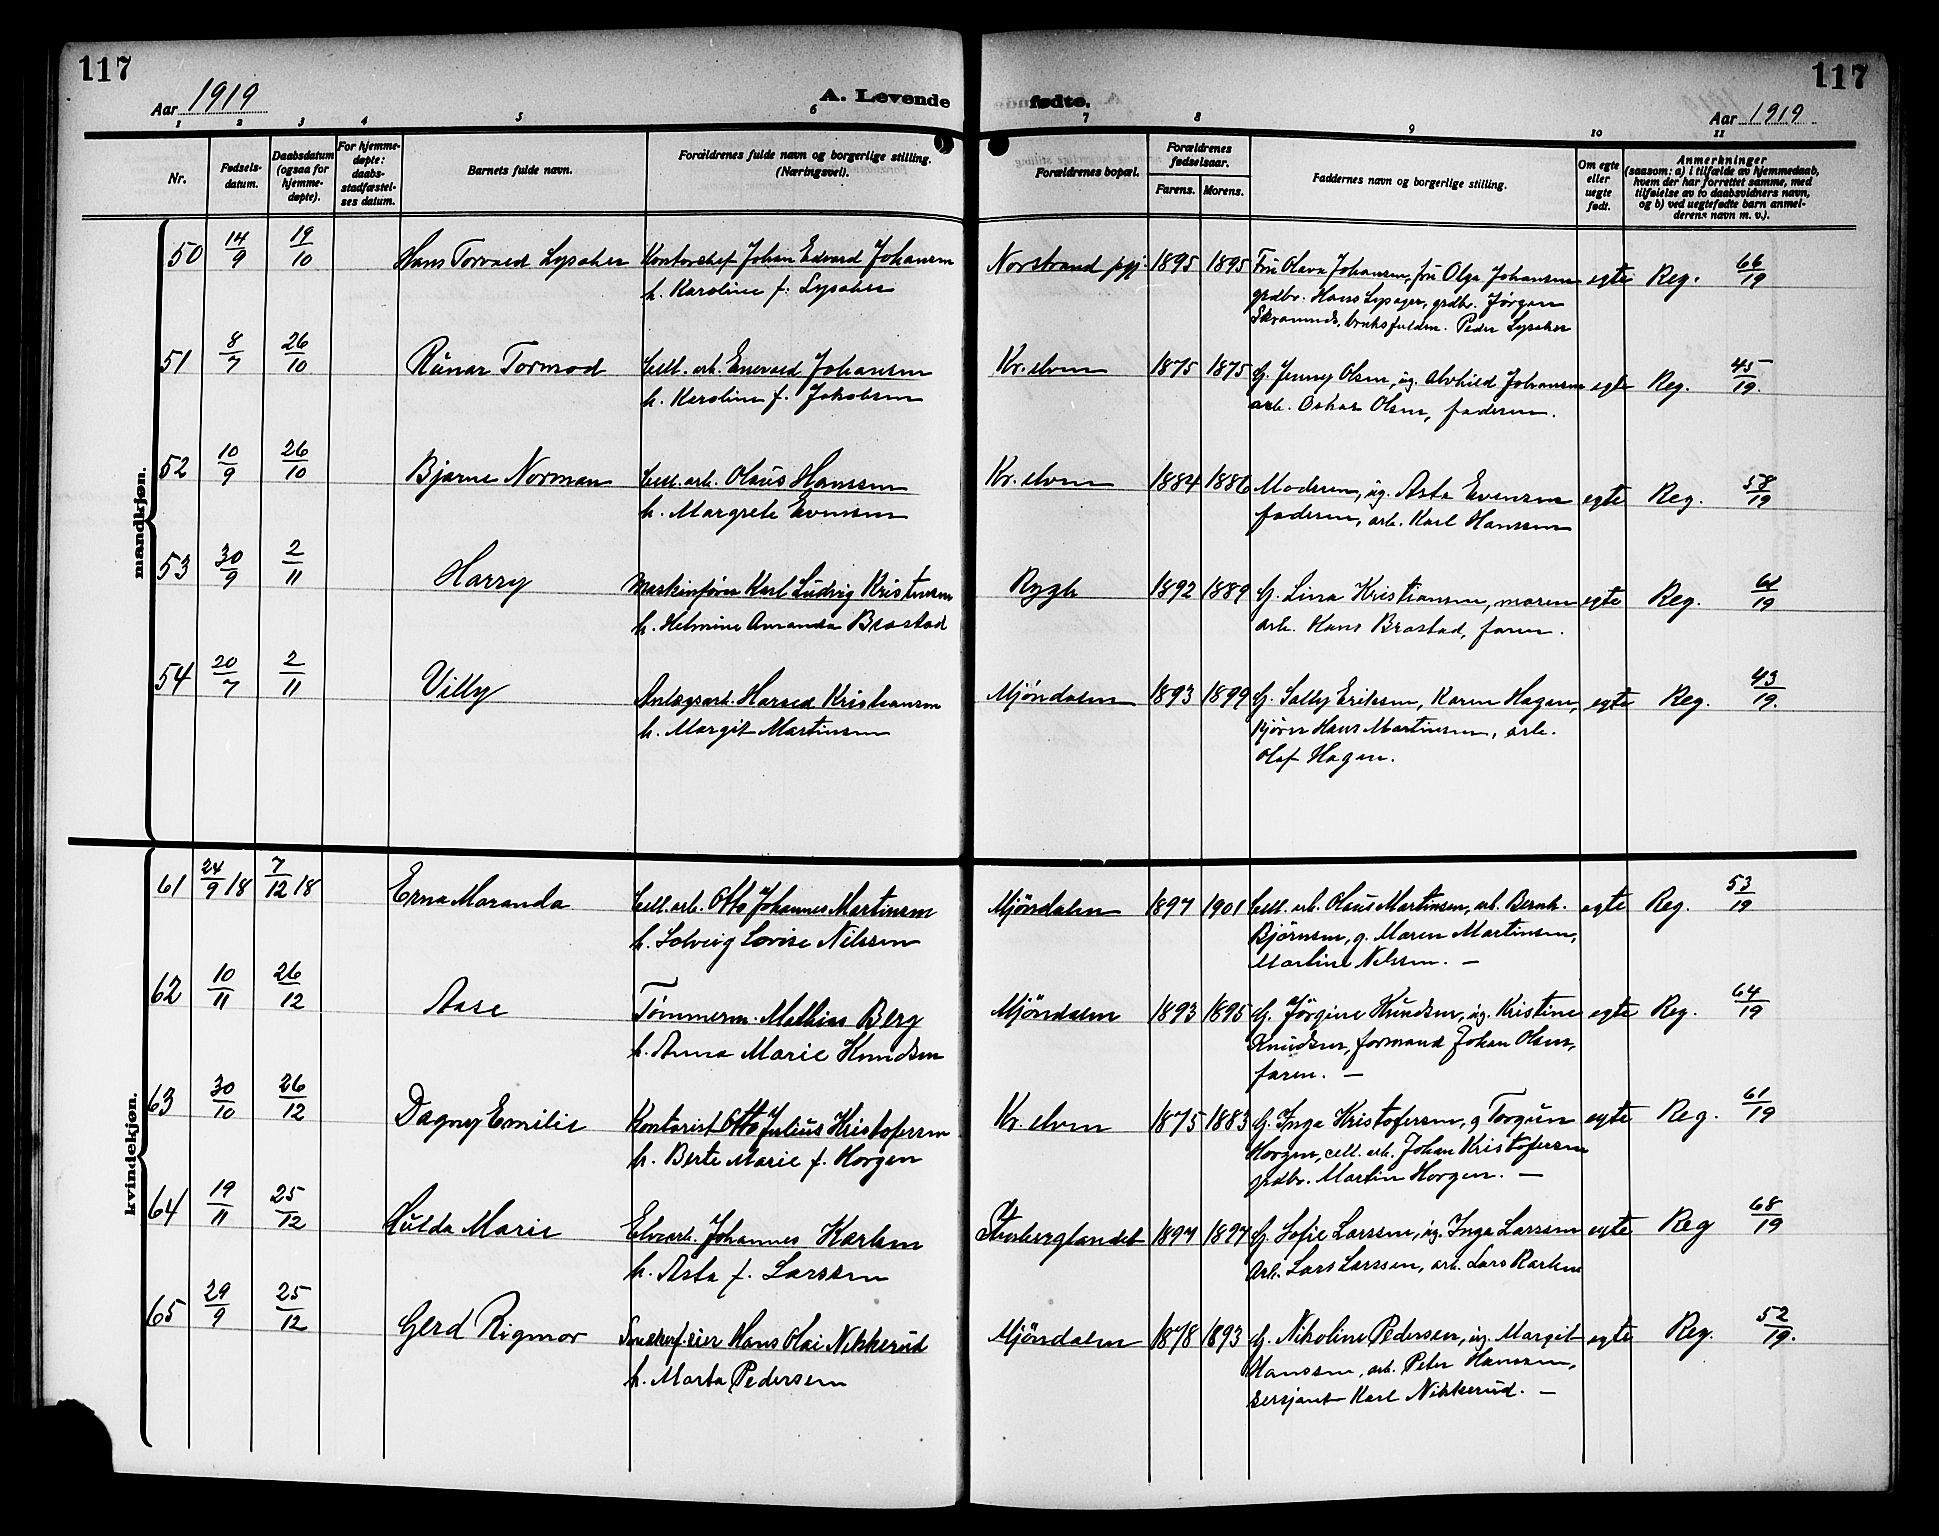 117
Aar 1919
A. Levende
fødte.
117
Aar 1919
1 2 3 4 5 6 7 8 9 10 11
Nr.
Fødsels-
datum.
Daabsdatum
(ogsaa for
hjemme-
døpte).
For hjemme-
døpte:
daabs-
stadfæstel-
ses datum.
Barnets fulde navn.
Forældrenes fulde navn og borgerlige stilling.
(Næringsvei).
Forældrenes bopæl.
Forældrenes
fødselsaar.
Farens. Morens.
Faddernes navn og borgerlige stilling.
Om egte
eller
uegte
født.
Anmerkninger
(saasom: a) i tilfælde av hjemmedaab,
hvem der har forrettet samme, med
tilføielse av to daabsvidners navn,
og b) ved uegtefødte barn anmel-
derens navn m. v.).
mandkjøn.
50 14/9 19/10 Hans Torvald Lysaker Kontorchef Johan Edvard Johansen Norstrand pgj. 1895 1895 Fru Olava Johansen, fru Olga Johansen egte Reg. 66/19
h. Karoline f. Lysaker grdbr. Hans Lysager, grdbr. Jørgen
Peder Lysaker
51 8/7 26/10 Rünar Tormod Cell. arb. Enevald Johansen Kr. elven 1875 1875 G. Jenny Olsen, ug. Alvhild Johansen egte Reg. 45/19.
h. Karoline f. Jakobsen arb. Oskar Olsen, faderen.
52 10/9 26/10 Bjarne Norman Cell. arb. Olaüs Hanssen Kr. elven 1884 1886 Moderen, ug. Asta Evensen egte Reg. 58/19
h. Margrete Evensen faderen, arb. Karl Hanssen
53 30/9 2/11 Harry Maskinfører Karl Ludvig Kristensen Rygh 1892 1889 G. Lina Kristiansen, moren egte Reg. /19
h. Helmine Amanda Brostad arb. Hans Brostad, faren.
54 20/7 2/11 Villy Anlægsarb. Harald Kristiansen Mjøndalen 1893 1899 G. Sally Eriksen, Karen Hagen, egte Reg. 43/19.
h. Margit Martinsen kjører Hans Martinsen, arb.
Olaf Hagen.
kvindekjøn.
61 24/9 18 7/12 18 Erna Maranda Cell. arb. Otto Johannes Martinsen Mjøndalen 1897 1901 Cell. arb. Olaus Martinsen, arb. Bernh. egte Reg. 53/19
h. Solveig Lovise Nilssen Bjørnsen, g. Maren Martinsen,
Martine Nilssen. —
62 10/11 26/12 Aase Tømmerm. Mathias Berg Mjöndalen 1893 1895 G. Jörgine Knudsen, ug. Kristine egte Reg. 64/19
h. Anna Marie Knudsen Knudsen, formand Johan Olsen,
faren. —
63 30/10 26/12 Dagny Emilie Kontorist Otto Julius Kristofersen Kr. elven 1875 1883 G. Inga Kristofersen, g Torgun egte Reg. 61/19
h. Berte Marie f. Horgen Horgen, cell. arb. Johan Kristofersen
grdbr. Martin Horgen. —
64 19/11 25/12 Hulda Marie Elvearb. Johannes Karlsen 1897 1897 G. Sofie Larssen, ug. Inga Larssen egte Reg 68/19
h. Asta f. Larssen Arb. Lars Larssen, arb. Lars Karlsen
65 29/9 25/12 Gerd Rigmor Hans Olai Nikkerud Mjöndalen 1878 1893 G. Nikoline Pedersen, ug. Margit egte Reg. 52/19.
h. Marta Pedersen Hanssen, arb. Peter Hanssen,
sersjant Karl Nikkerud. —